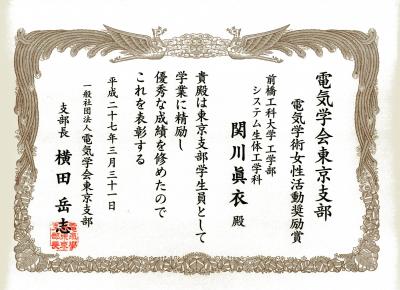 電気学会東京支部
電気学術女性活動奨励賞
前橋工科大学 工学部
システム生体工学科
関川眞衣 殿
貴殿は東京支部学生員として
学業に精励し
優秀な成績を修めたので
これを表彰する
平成二十七年三月三十一日
一般社団法人 電気学会東京支部
支部長 横田岳志